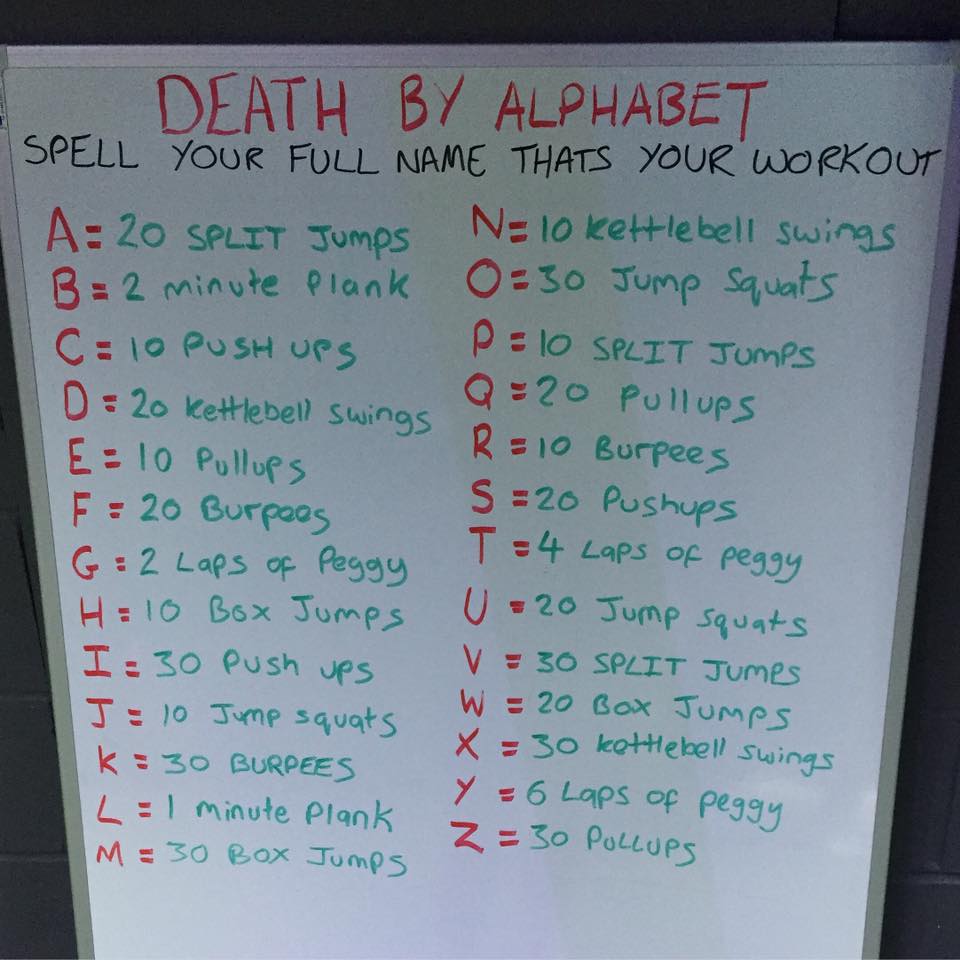 DEATH BY ALPHABET
SPELL YOUR FULL NAME THATS YOUR WORKOUT
A = 20 SPLIT Jumps
B = 2 minute Plank
C = 10 PUSH UPS
D = 20 kettlebell swings
E = 10 Pullups
F = 20 Burpees
G = 2 Laps of Peggy
H = 10 Box Jumps
I = 30 Push ups
J = 10 Jump squats
K = 30 BURPEES
L = 1 minute Plank
M = 30 BOX Jumps
N = 10 kettlebell swings
O = 30 Jump Squats
P = 10 SPLIT Jumps
Q = 20 Pullups
R = 10 Burpees
S = 20 Pushups
T = 4 Laps of peggy
U = 20 Jump squats
V = 30 SPLIT Jumps
W = 20 Box Jumps
X = 30 kettlebell swings
Y = 6 Laps of peggy
Z = 30 PULLUPS